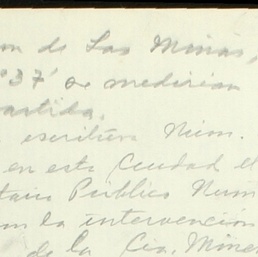 on de Las Minas,
°37' se medirian
partida.
escritura Núm.
en esta Ciudad el
tario Público Núm
on la intervención
de la Cia. Mine